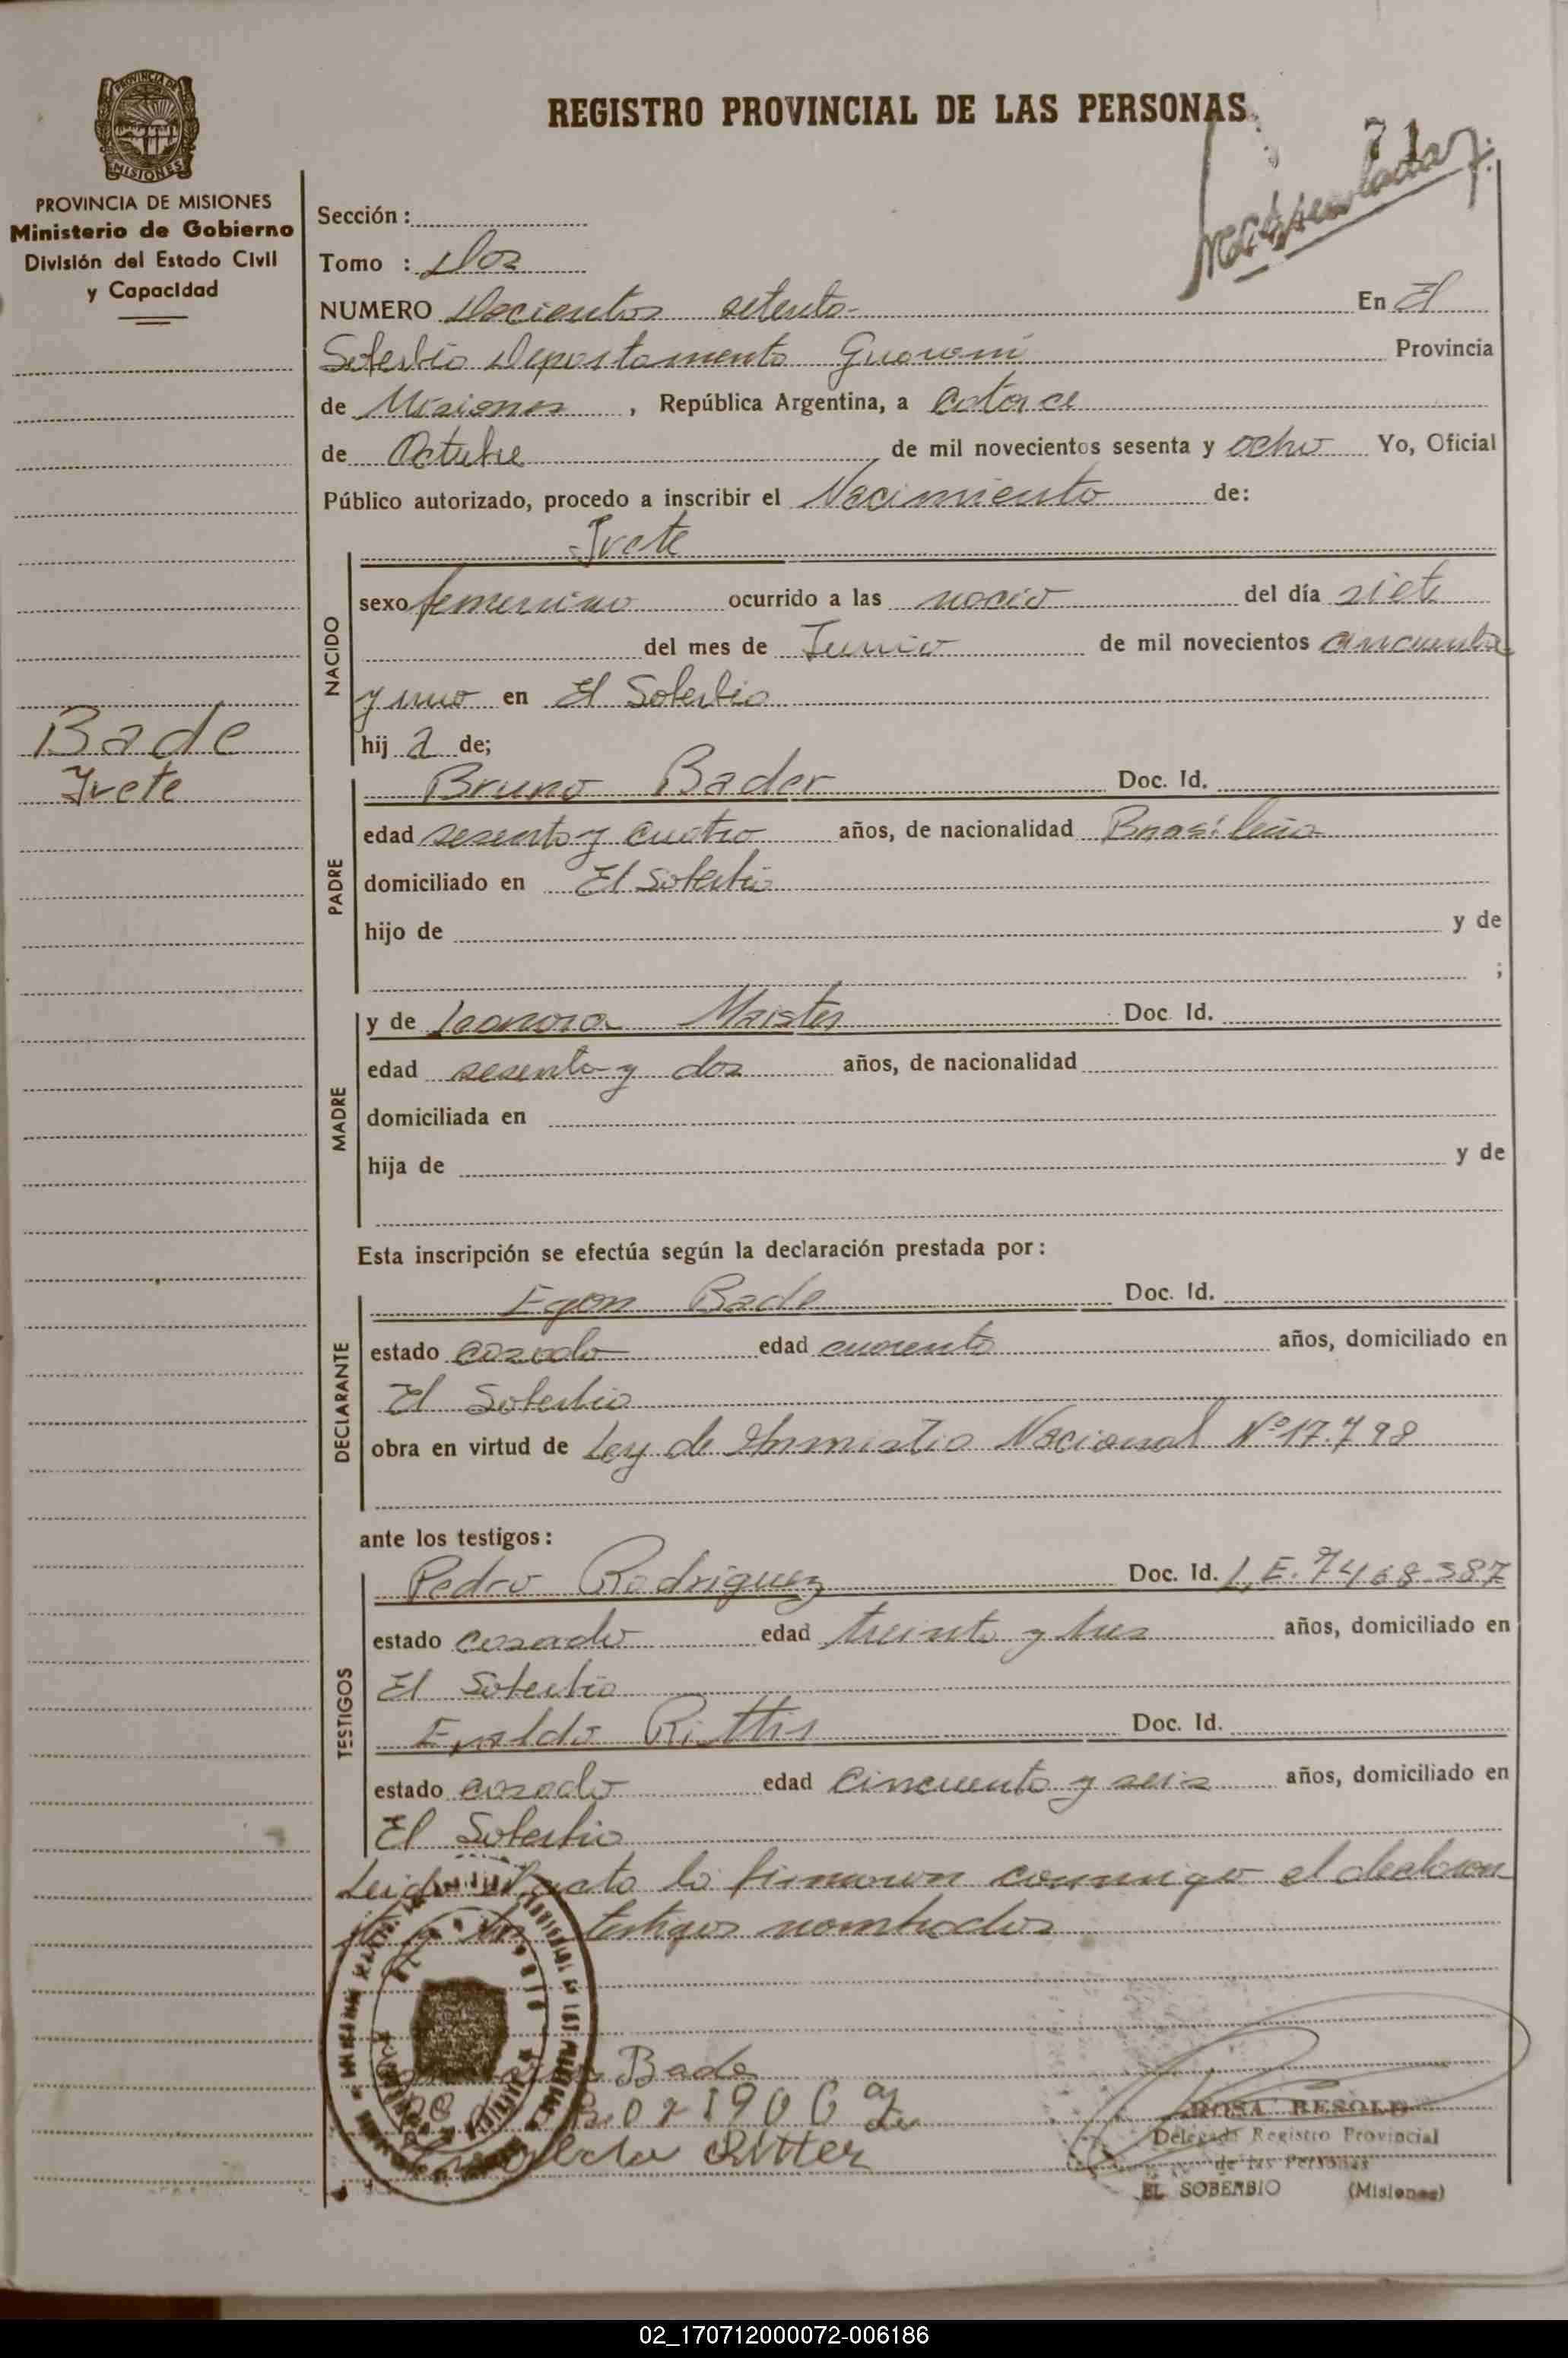 REGISTRO PROVINCIAL DE LAS PERSONAS
71
PROVINCIA DE MISIONES
Ministerio de Gobierno
División del Estado Civil
y Capacidad
Sección :
Tomo : Dos
NUMERO Docientos setenta- En El
Soberbio Departamento Guaraní Provincia
de Misiones , República Argentina, a catorce
de Octubre de mil novecientos sesenta y ocho Yo, Oficial
Público autorizado, procedo a inscribir el Nacimiento de:
NACIDO
-Ivete
sexo femenino ocurrido a las nació del día siete
del mes de Junio de mil novecientos cincuenta
y uno en El Soberbio
hij a de;
Bade
Ivete
PADRE
Bruno Bader Doc. Id.
edad sesenta y cuatro años, de nacionalidad Brasileña
domiciliado en El Soberbio
hijo de y de
;
MADRE
y de Leonora Maister Doc. Id.
edad sesenta y dos años, de nacionalidad
domiciliada en
hija de y de
Esta inscripción se efectúa según la declaración prestada por:
DECLARANTE
Egon Bade Doc. Id.
estado casado edad cuarenta años, domiciliado en
El Soberbio
obra en virtud de Ley de Amnistia Nacional Nº 17.798
ante los testigos:
TESTIGOS
Pedro Rodriguez Doc. Id. L.E. 7468.387
estado casado edad treinta y tres años, domiciliado en
El Soberbio
Doc. Id.
estado casado edad cincuenta y seis años, domiciliado en
El Soberbio
Leida el acta la firmaron conmigo el declaran
te y los testigos nombrados
Bade
Ritter
ROSA RESOLD
Delegada Registro Provincial
de las Personas
EL SOBERBIO (Misiones)
02_170712000072-006186